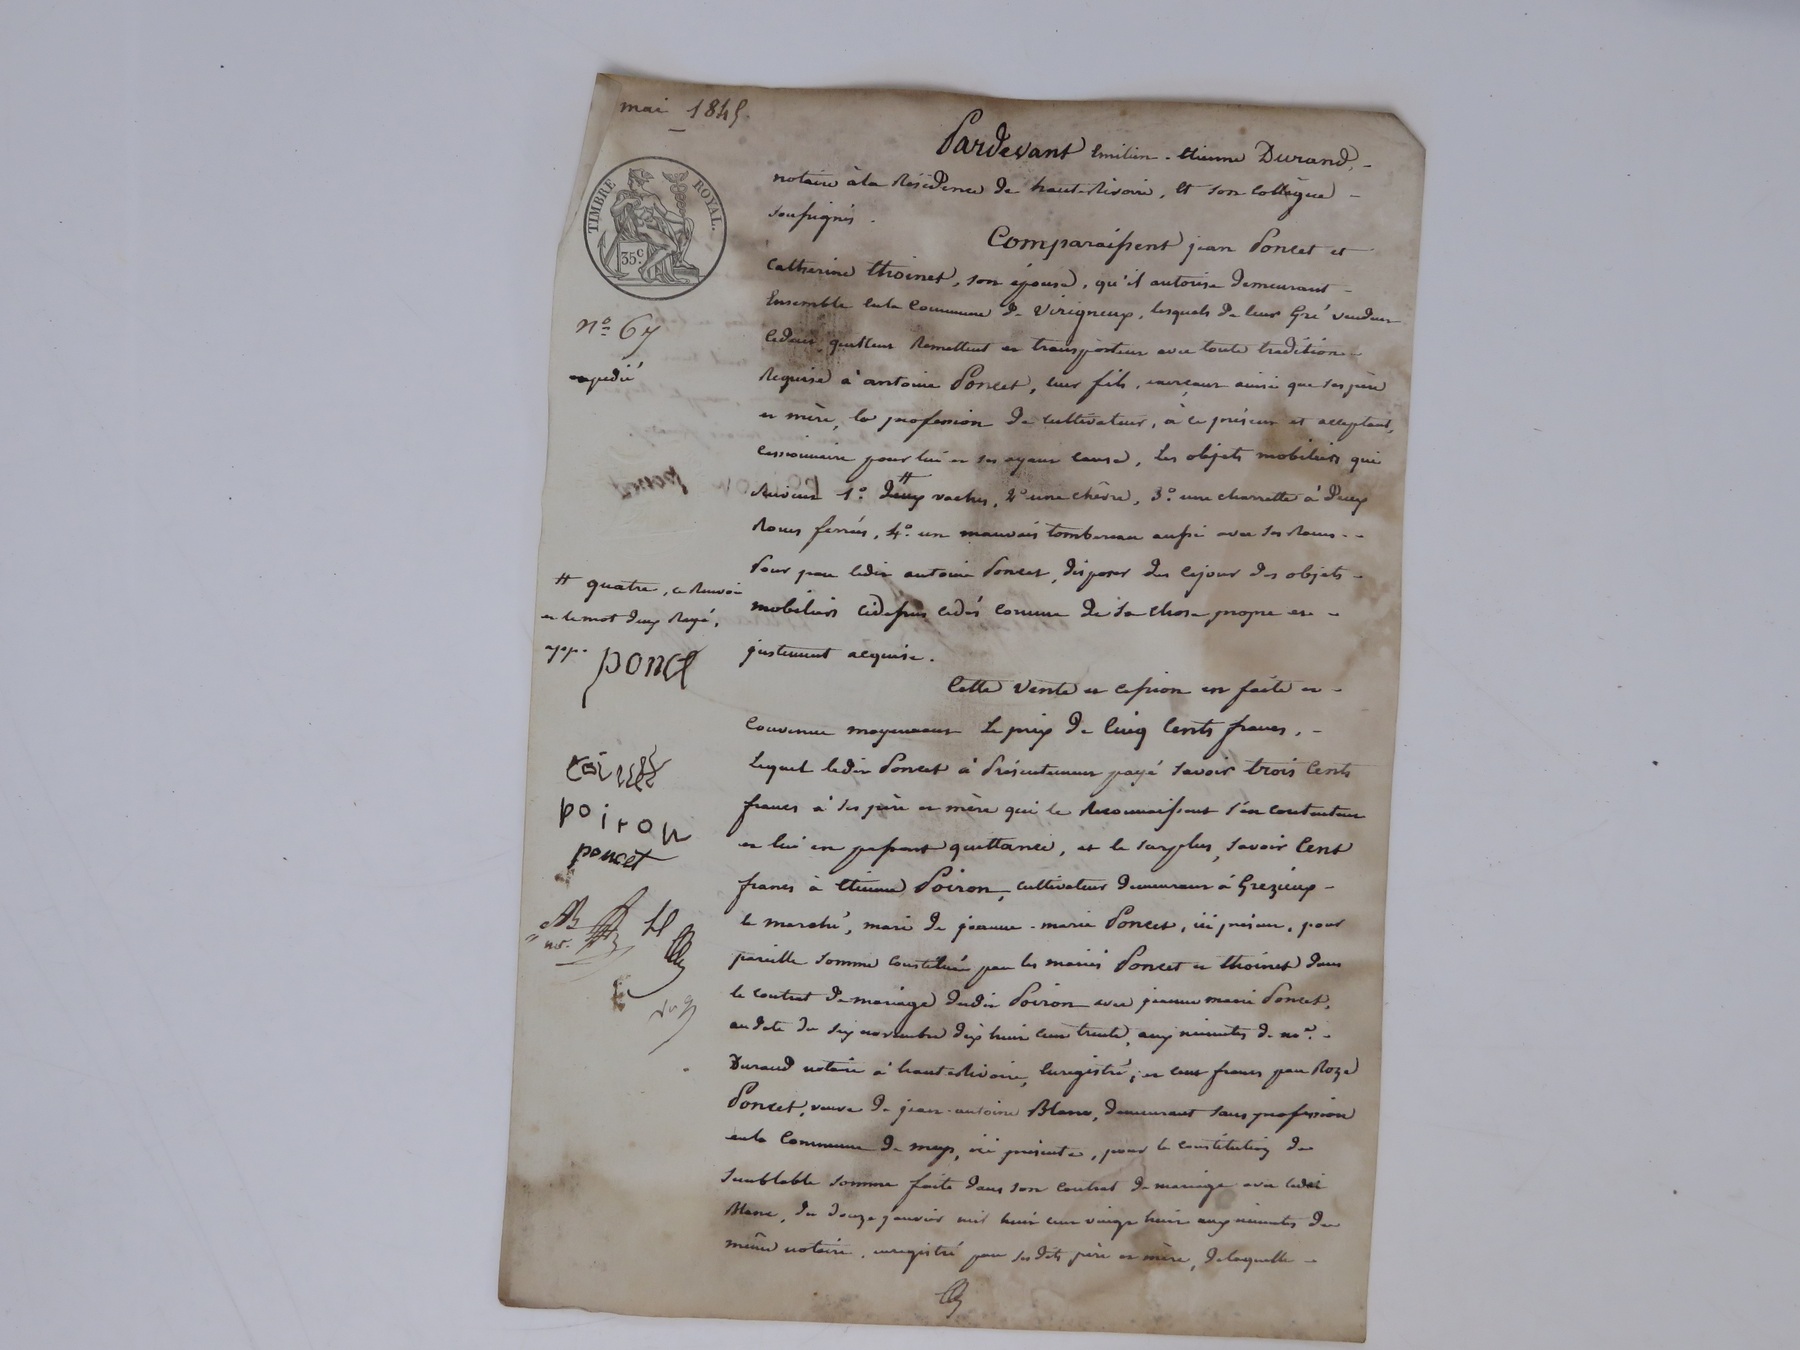 mai 1845.
TIMBRE ROYAL.
35c.
no 67
expédié
Pardevant Emilien - Etienne Durand, -
notaire à la Résidence de haute-Rivoire, et son collègue -
soussignés.
Comparaissent jean Poncet et
Catherine thoinet, son épouse, qu'il autorise demeurant -
Ensemble en la Commune de Virigneux, lesquels de leur Gré vendent
Cèdent, quittent Remettent et transportent avec toute tradition -
Requise à antoine Poncet, leur fils, exerçant ainsi que ses père
et mère, la profession de cultivateur, à ce présent et acceptant,
cessionnaire pour lui et ses ayant cause, Les objets mobiliers qui
suivent 1o. deux vaches, 2o une chèvre, 3o. une charrette à deux
Roues ferrées, 4o. un mauvais tombereau aussi avec ses Roues --
Pour par ledit antoine Poncet, disposer dès cejour des objets -
mobiliers cidessus cédés comme de sa chose propre et -
justement acquise.
# quatre, ce Renvoi
et le mot deux Rayé,
app. poncet
Cette vente et cession est faite et -
Convenue moyennant Le prix de Cinq Cents francs, -
Lequel ledit Poncet à Présentement payé savoir trois Cents
francs à ses père et mère qui le Reconnaissent s'en contentent
et lui en passent quittance, et le surplus, savoir Cent
francs à Etienne Poiron, cultivateur demeurant à Grezieux -
le marché, mari de jeanne-marie Poncet, ici présent, pour
pareille somme constituée par les mariés Poncet et thoinet dans
le contrat de mariage dudit Poiron avec jeanne marie Poncet,
au date du six novembre dix huit cent trente, aux minutes de me. -
Durand notaire à haute Rivoire, Enregistré; et cent francs par Roze
Poncet, veuve de jean-antoine Blanc, demeurant sans profession
en la Commune de meys, ici présente, pour la constitution de
Semblable somme faite dans son contrat de mariage avec ledit
Blanc, du douze janvier mil huit cent vingt huit aux minutes du
même notaire, enregistré par ses dits père et mère, de laquelle -
poiron
poncet